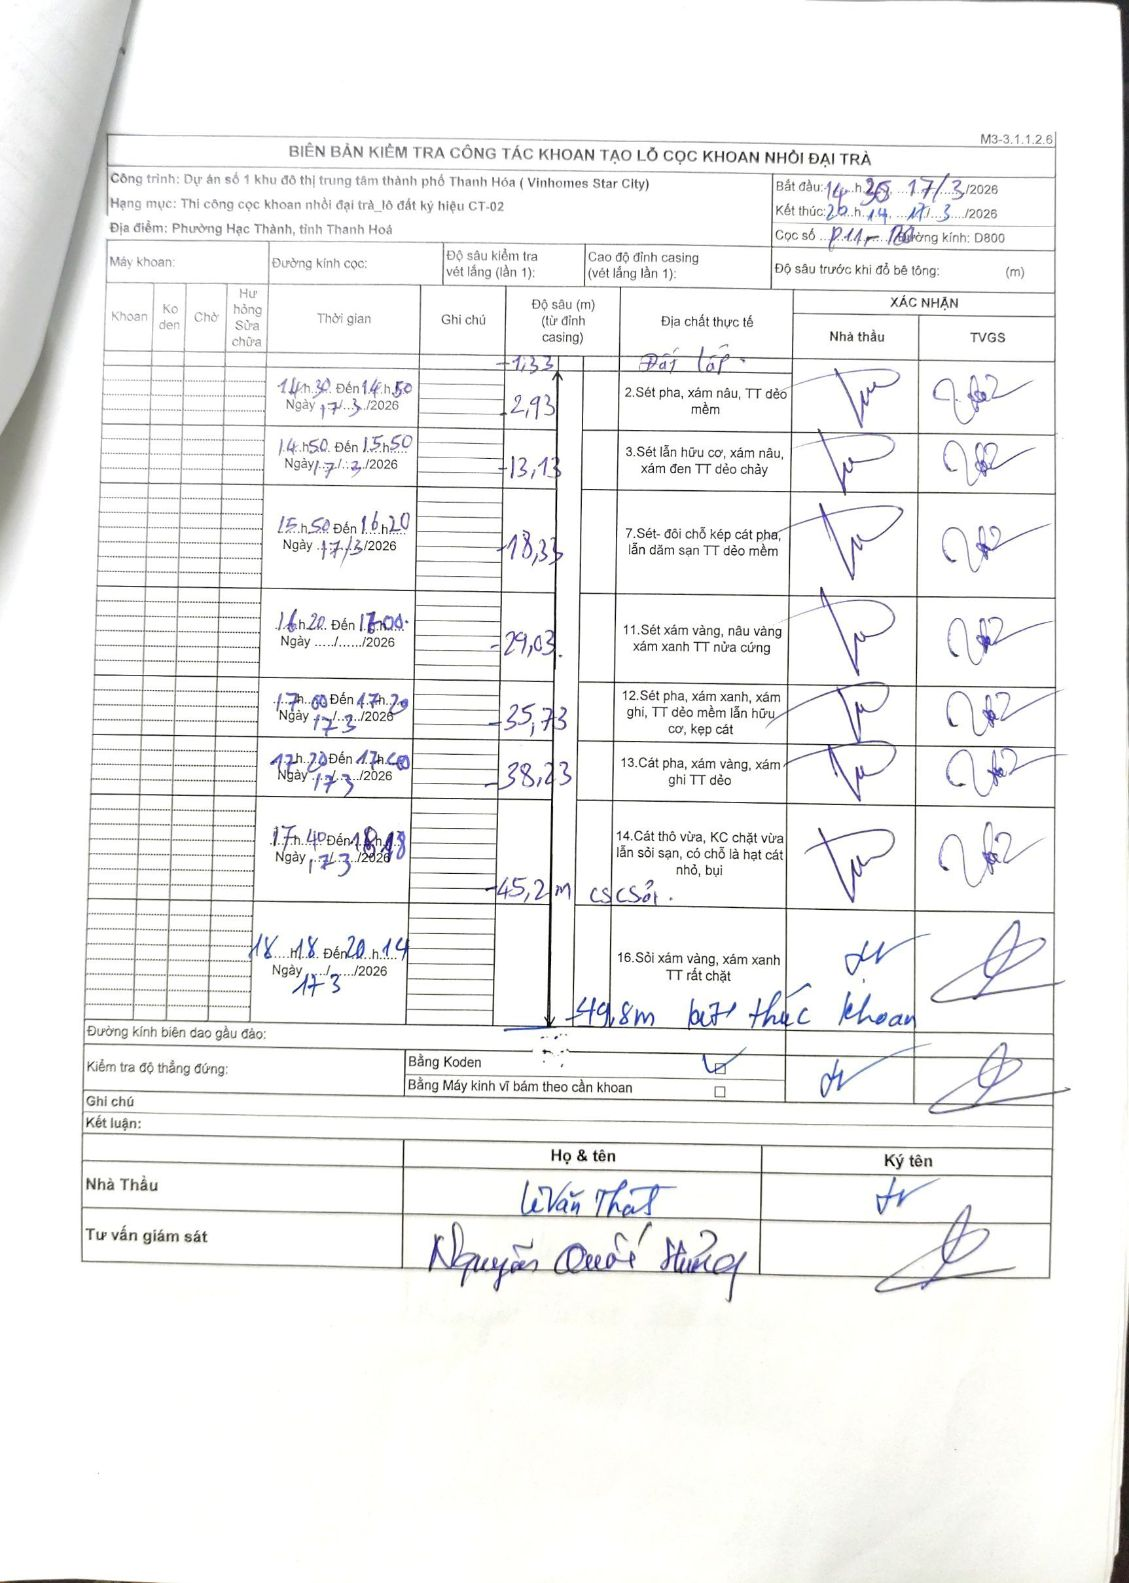 M3-3.1.1.2.6
BIÊN BẢN KIỂM TRA CÔNG TÁC KHOAN TẠO LỖ CỌC KHOAN NHỒI ĐẠI TRÀ
Công trình: Dự án số 1 khu đô thị trung tâm thành phố Thanh Hóa ( Vinhomes Star City)
Hạng mục: Thi công cọc khoan nhồi đại trà_lô đất ký hiệu CT-02
Địa điểm: Phường Hạc Thành, tỉnh Thanh Hoá
Bắt đầu: 14 h 17/3/2026
Kết thúc: 20 h 14, 17/3/2026
Cọc số P11- Đường kính: D800
Máy khoan:
Đường kính cọc:
Độ sâu kiểm tra vét lắng (lần 1):
Cao độ đỉnh casing (vét lắng lần 1):
Độ sâu trước khi đổ bê tông: (m)
Khoan
Ko đen
Chờ
Hư hỏng Sửa chữa
Thời gian
Ghi chú
Độ sâu (m) (từ đỉnh casing)
Địa chất thực tế
XÁC NHẬN
Nhà thầu
TVGS
-1,33 Đất lấp.
14h30 Đến 14h50
Ngày 17/3/2026
-2,93
2.Sét pha, xám nâu, TT dẻo mềm
14h50 Đến 15h50
Ngày 17/3/2026
-13,13
3.Sét lẫn hữu cơ, xám nâu, xám đen TT dẻo chảy
15h50 Đến 16h20
Ngày 17/3/2026
-18,33
7.Sét- đôi chỗ kép cát pha, lẫn dăm sạn TT dẻo mềm
16h20 Đến 17h00
Ngày ...../....../2026
-29,03
11.Sét xám vàng, nâu vàng xám xanh TT nửa cứng
17h00 Đến 17h20
Ngày 17/3/2026
-35,73
12.Sét pha, xám xanh, xám ghi, TT dẻo mềm lẫn hữu cơ, kẹp cát
17h20 Đến 17h40
Ngày 17/3/2026
-38,23
13.Cát pha, xám vàng, xám ghi TT dẻo
17h40 Đến 18h18
Ngày 17/3/2026
-45,2m CSCSỏi.
14.Cát thô vừa, KC chặt vừa lẫn sỏi sạn, có chỗ là hạt cát nhỏ, bụi
18h18 Đến 20h14
Ngày 17/3/2026
16.Sỏi xám vàng, xám xanh TT rất chặt
-49,8m kết thúc khoan
Đường kính biên dao gầu đào:
Kiểm tra độ thẳng đứng:
Bằng Koden
Bằng Máy kinh vĩ bám theo cần khoan
Ghi chú
Kết luận:
Họ & tên
Ký tên
Nhà Thầu
Lê Văn Thật
Tư vấn giám sát
Nguyễn Quốc Hưng